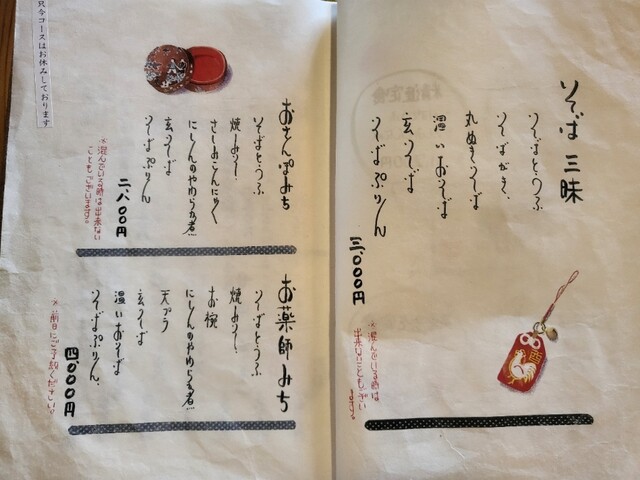 そば三昧
そばとうふ
そばがき
丸ぬきそば
温いおそば
玄そば
そばぷりん
三、000円
※混んでいる時は
出来ないこともござい
ます。
おさんぽみち
そばとうふ
焼みそ
さしみこんにゃく
にしんのやわらか煮
玄そば
そばぷりん
二、八00円
※混んでいる時は出来ない
こともございます。
お薬師みち
そばとうふ
焼みそ
お椀
にしんのやわらか煮
天プラ
玄そば
温いおそば
そばぷりん
四、000円
※前日にご予約ください。
只今コースはお休みしております